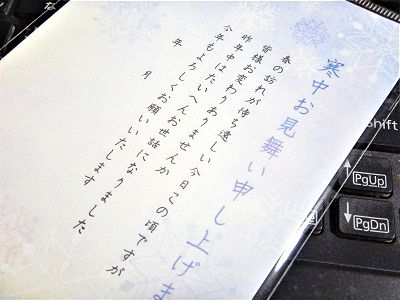 寒中お見舞い申し上げま
春の訪れが待ち遠しい今日この頃ですが
皆様お変わりありませんか
昨年中はたいへんお世話になりました
今年もよろしくお願いいたします
年 月
Shift
PgUp
PgDn